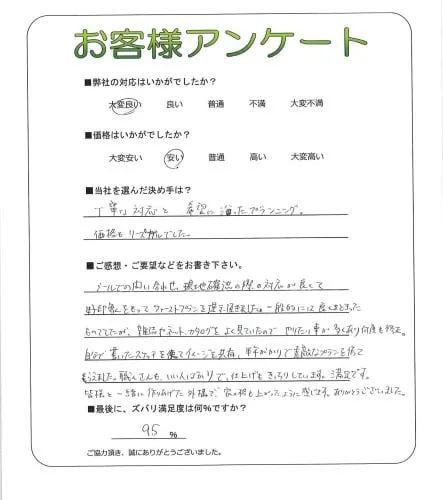 お客様アンケート
■弊社の対応はいかがでしたか?
大変良い 良い 普通 不満 大変不満
■価格はいかがでしたか?
大変安い 安い 普通 高い 大変高い
■当社を選んだ決め手は?
丁寧な対応と 希望に沿ったプランニング。
価格もリーズナブルでした。
■ご感想・ご要望などをお書き下さい。
メールでの問い合せ、現地確認の際の対応が良くて
好印象をもって ファーストプランを提示頂きました。一般的には良くまとまった
ものでしたが、雑誌やネット、カタログをよく見ていたので やりたい事が多くあり何度も修正。
自分で書いたスケッチを使てイメージを共有、半年がかりで素敵なプランを作って
もらえました。職人さんも、いい人ばかりで、仕上げもきっちりしています。満足です。
皆様と一緒に作りあげた外構で、家の格も上がったように感じます。ありがとうございました。
■最後に、ズバリ満足度は何%ですか?
95 %
ご協力頂き、誠にありがとうございました。